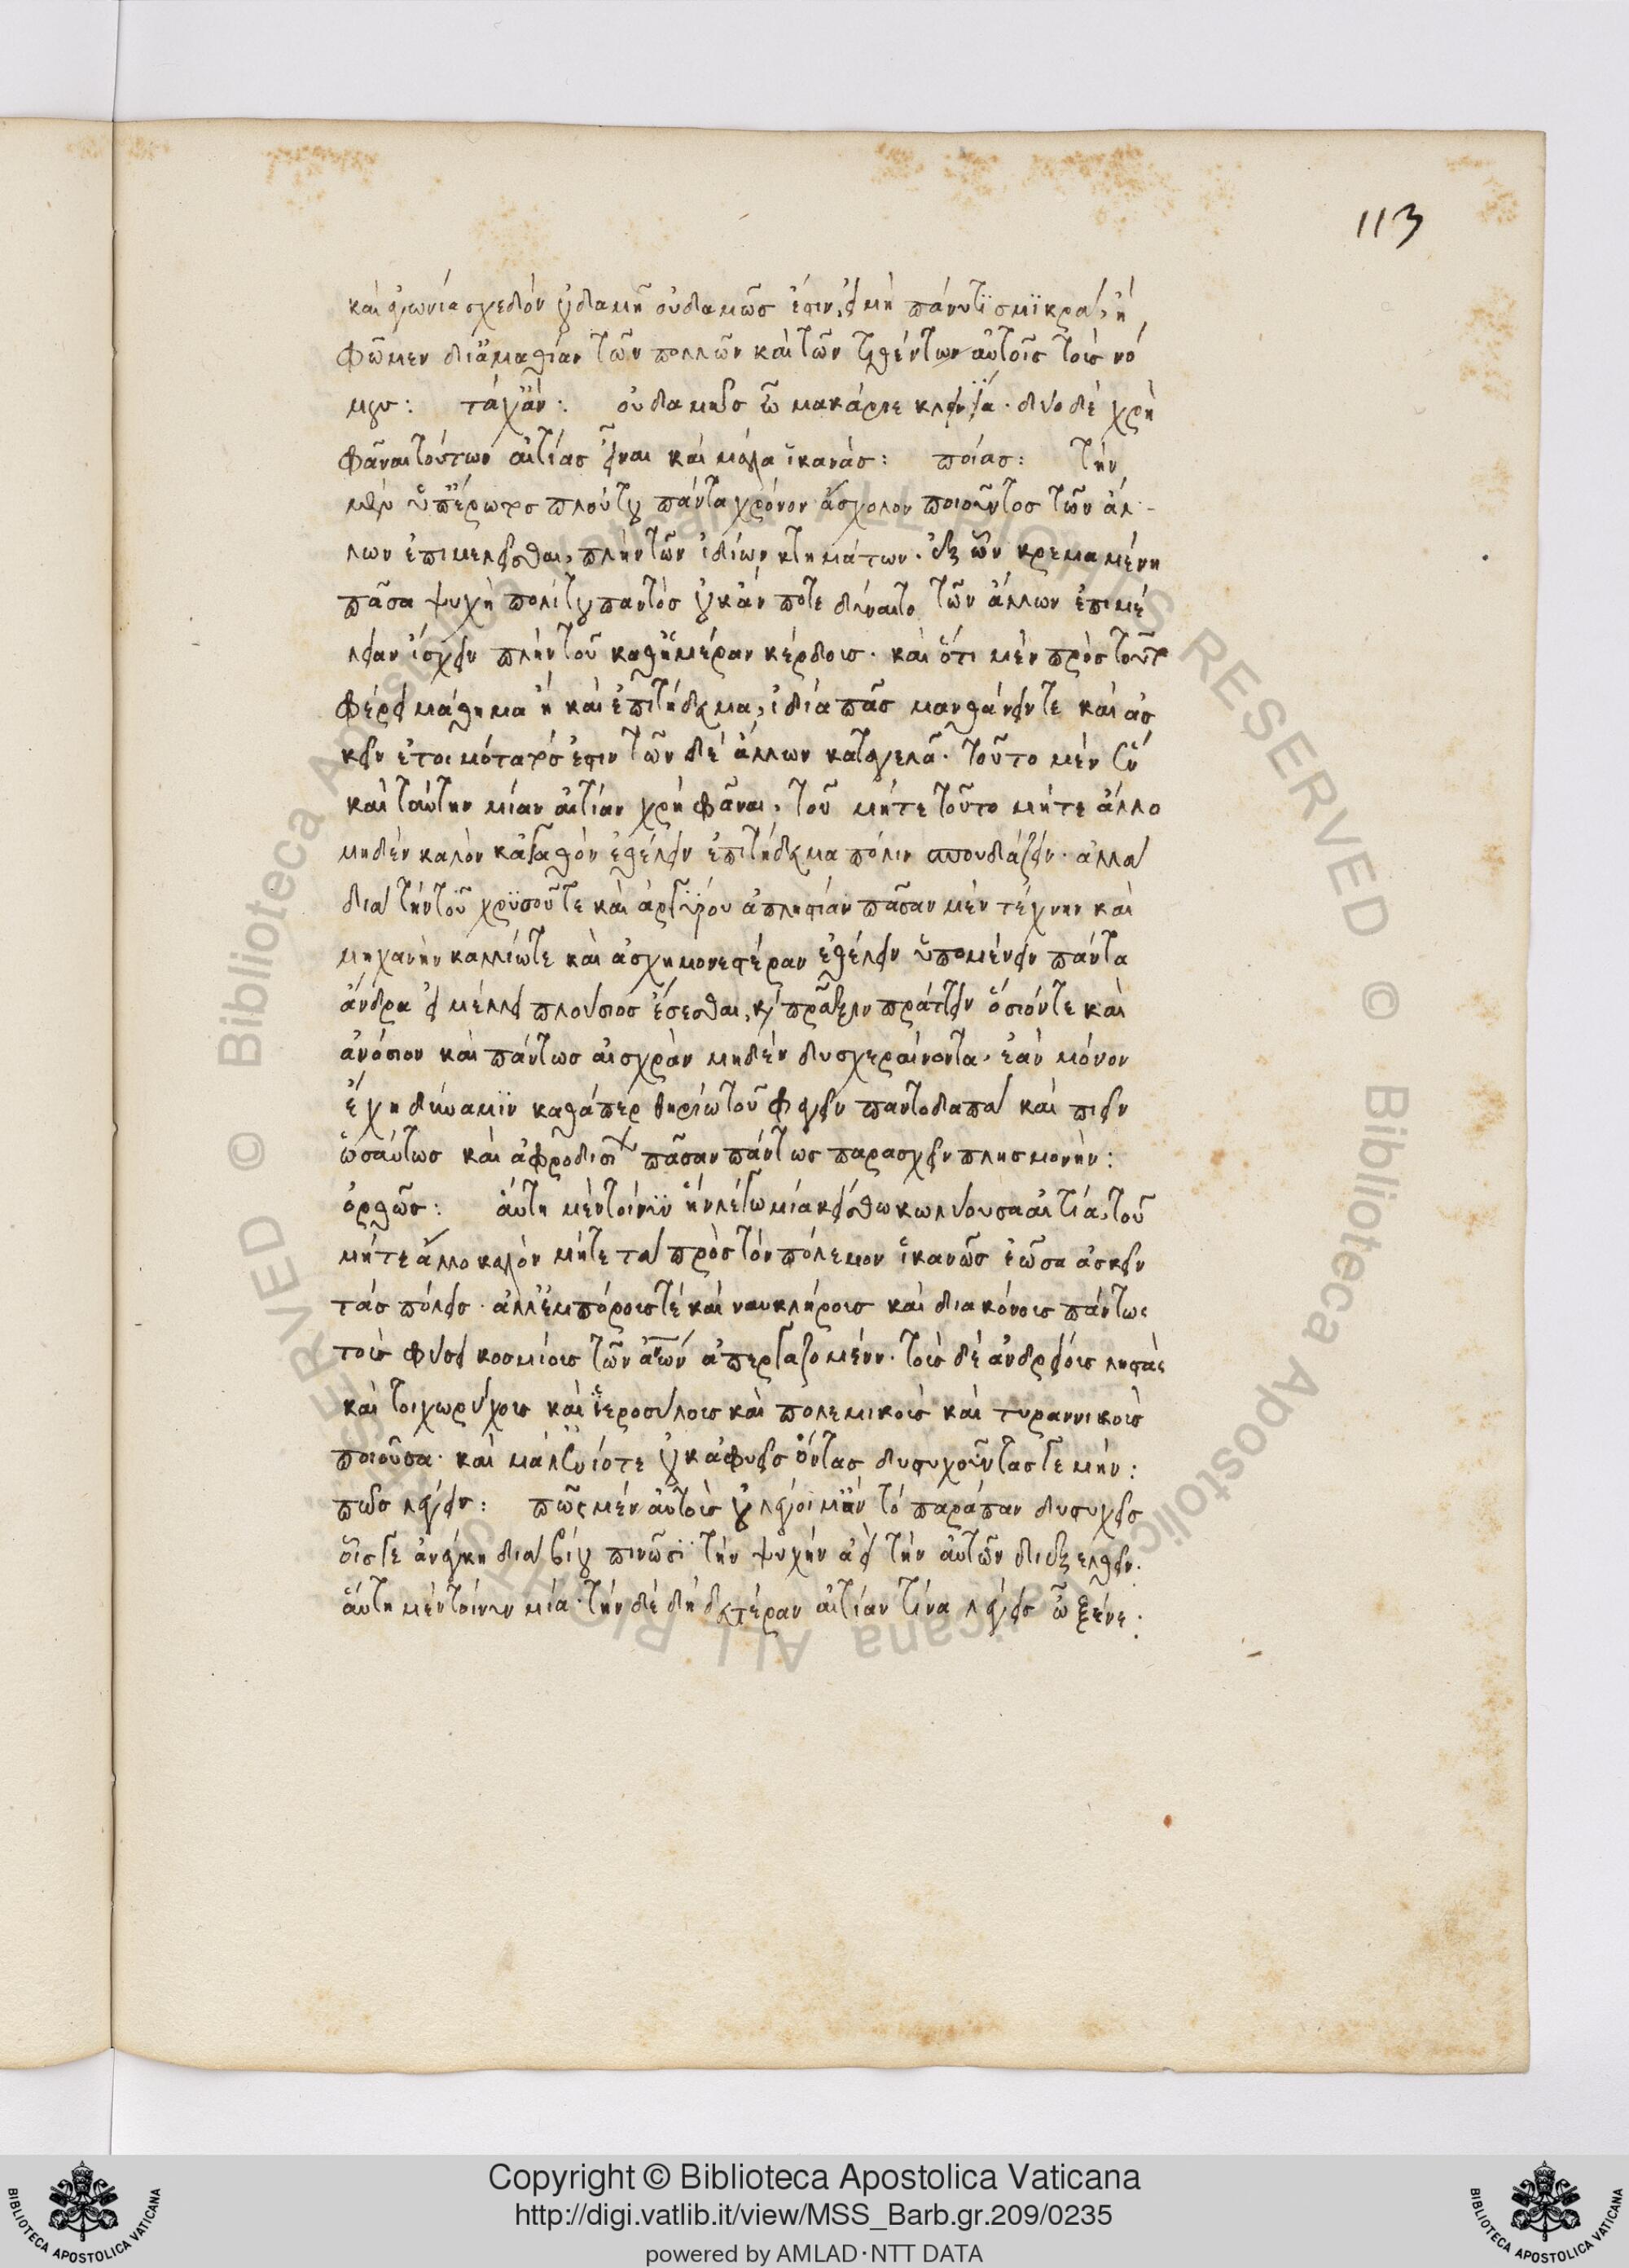 113
καὶ ἀγωνία σχεδὸν οὐδαμῆ οὐδαμῶς ἐστιν, εἰ μὴ πάνυ τϊ σμϊκρά, ἢ
φῶμεν δι' ἀμαθίαν τῶν πολλῶν καὶ τῶν τιθέντων αὐτοῖς τοὺς νό
μους: τάχ' ἄν: οὐδαμῶς ὦ μακάριε κλεινία· δύο δὲ χρὴ
φᾶναι τούτων αἰτίας εἶναι καὶ μάλα ἱκανάς: ποίας: τὴν
μὲν ὑπ' ἔρωτος πλούτου πάντα χρόνον ἄσχολον ποιοῦντος τῶν ἄλ-
λων ἐπιμελεῖσθαι, πλὴν τῶν ἰδίων κτημάτων. ἐξ ὧν κρεμαμένη
πᾶσα ψυχὴ πολίτου παντὸς οὐκ ἄν ποτε δύναιτο τῶν ἄλλων ἐπιμέ
λειαν ἴσχειν πλὴν τοῦ καθ' ἡμέραν κέρδους. καὶ ὅτι μὲν πρὸς τοῦτο
φέρει μάθημα ἢ καὶ ἐπιτήδευμα, ἰδία πᾶς μανθάνειν τε καὶ ἀσ
κεῖν ἑτοιμότατός ἐστιν τῶν δὲ ἄλλων καταγελᾶ. τοῦτο μὲν ἓν
καὶ ταύτην μίαν αἰτίαν χρὴ φᾶναι, τοῦ μήτε τοῦτο μήτε ἄλλο
μηδὲν καλὸν κἀγαθὸν ἐθέλειν ἐπιτήδευμα πόλιν σπουδάζειν. ἀλλὰ
διὰ τὴν τοῦ χρϋσοῦ τε καὶ ἀργύρου ἀπληστίαν πᾶσαν μὲν τέχνην καὶ
μηχανὴν καλλίω τε καὶ ἀσχημονεστέραν ἐθέλειν ὑπομένειν πάντα
ἄνδρα εἰ μέλλει πλούσιος ἔσεσθαι, καὶ πρᾶξιν πράττειν ὅσιόν τε καὶ
ἀνόσιον καὶ πάντως αἰσχρὰν μηδὲν δυσχεραίνοντα, ἐὰν μόνον
ἔχη δύναμϊν καθάπερ θηρίω τοῦ φαγεῖν παντοδαπὰ καὶ πιεῖν
ὡσαύτως καὶ ἀφροδισίων πᾶσαν πάντως παρασχεῖν πλησμονήν:
ὀρθῶς: αὕτη μὲν τοίνυν ἣν λέγω μία κείσθω κωλύουσα αἰτία, τοῦ
μήτε ἄλλο καλὸν μήτε τὰ πρὸς τὸν πόλεμον ἱκανῶς ἐῶσα ἀσκεῖν
τὰς πόλεις. ἀλλ' ἐμπόρους τὲ καὶ ναυκλήρους καὶ διακόνους πάντως
τοὺς φύσει κοσμίους τῶν ἀνων ἀπεργαζομένη. τοὺς δὲ ἀνδρείους ληστὰς
καὶ τοιχωρύχους καὶ ἱεροσύλους καὶ πολεμικοὺς καὶ τυραννικοὺς
ποιοῦσα. καὶ μάλ' ἐνίοτε οὐκ ἀφυεῖς ὄντας δυστυχοῦντας γε μήν:
πῶς λέγεις: πῶς μὲν αὐτοὺς οὐ λέγοιμ' ἂν τὸ παράπαν δυστυχεῖς
οἷς γε ἀνάγκη διὰ βίου πινῶσϊ τὴν ψυχὴν ἀεὶ τὴν αὑτῶν διεξελθεῖν:
αὕτη μὲν τοίνυν μία. τὴν δὲ δὴ δευτέραν αἰτίαν τίνα λέγεις ὦ ξένε:
© Biblioteca Apostolica Vaticana ALL RIGHTS RESERVED
Copyright © Biblioteca Apostolica Vaticana
http://digi.vatlib.it/view/MSS_Barb.gr.209/0235
powered by AMLAD·NTT DATA
BIBLIOTECA APOSTOLICA VATICANA
BIBLIOTECA APOSTOLICA VATICANA